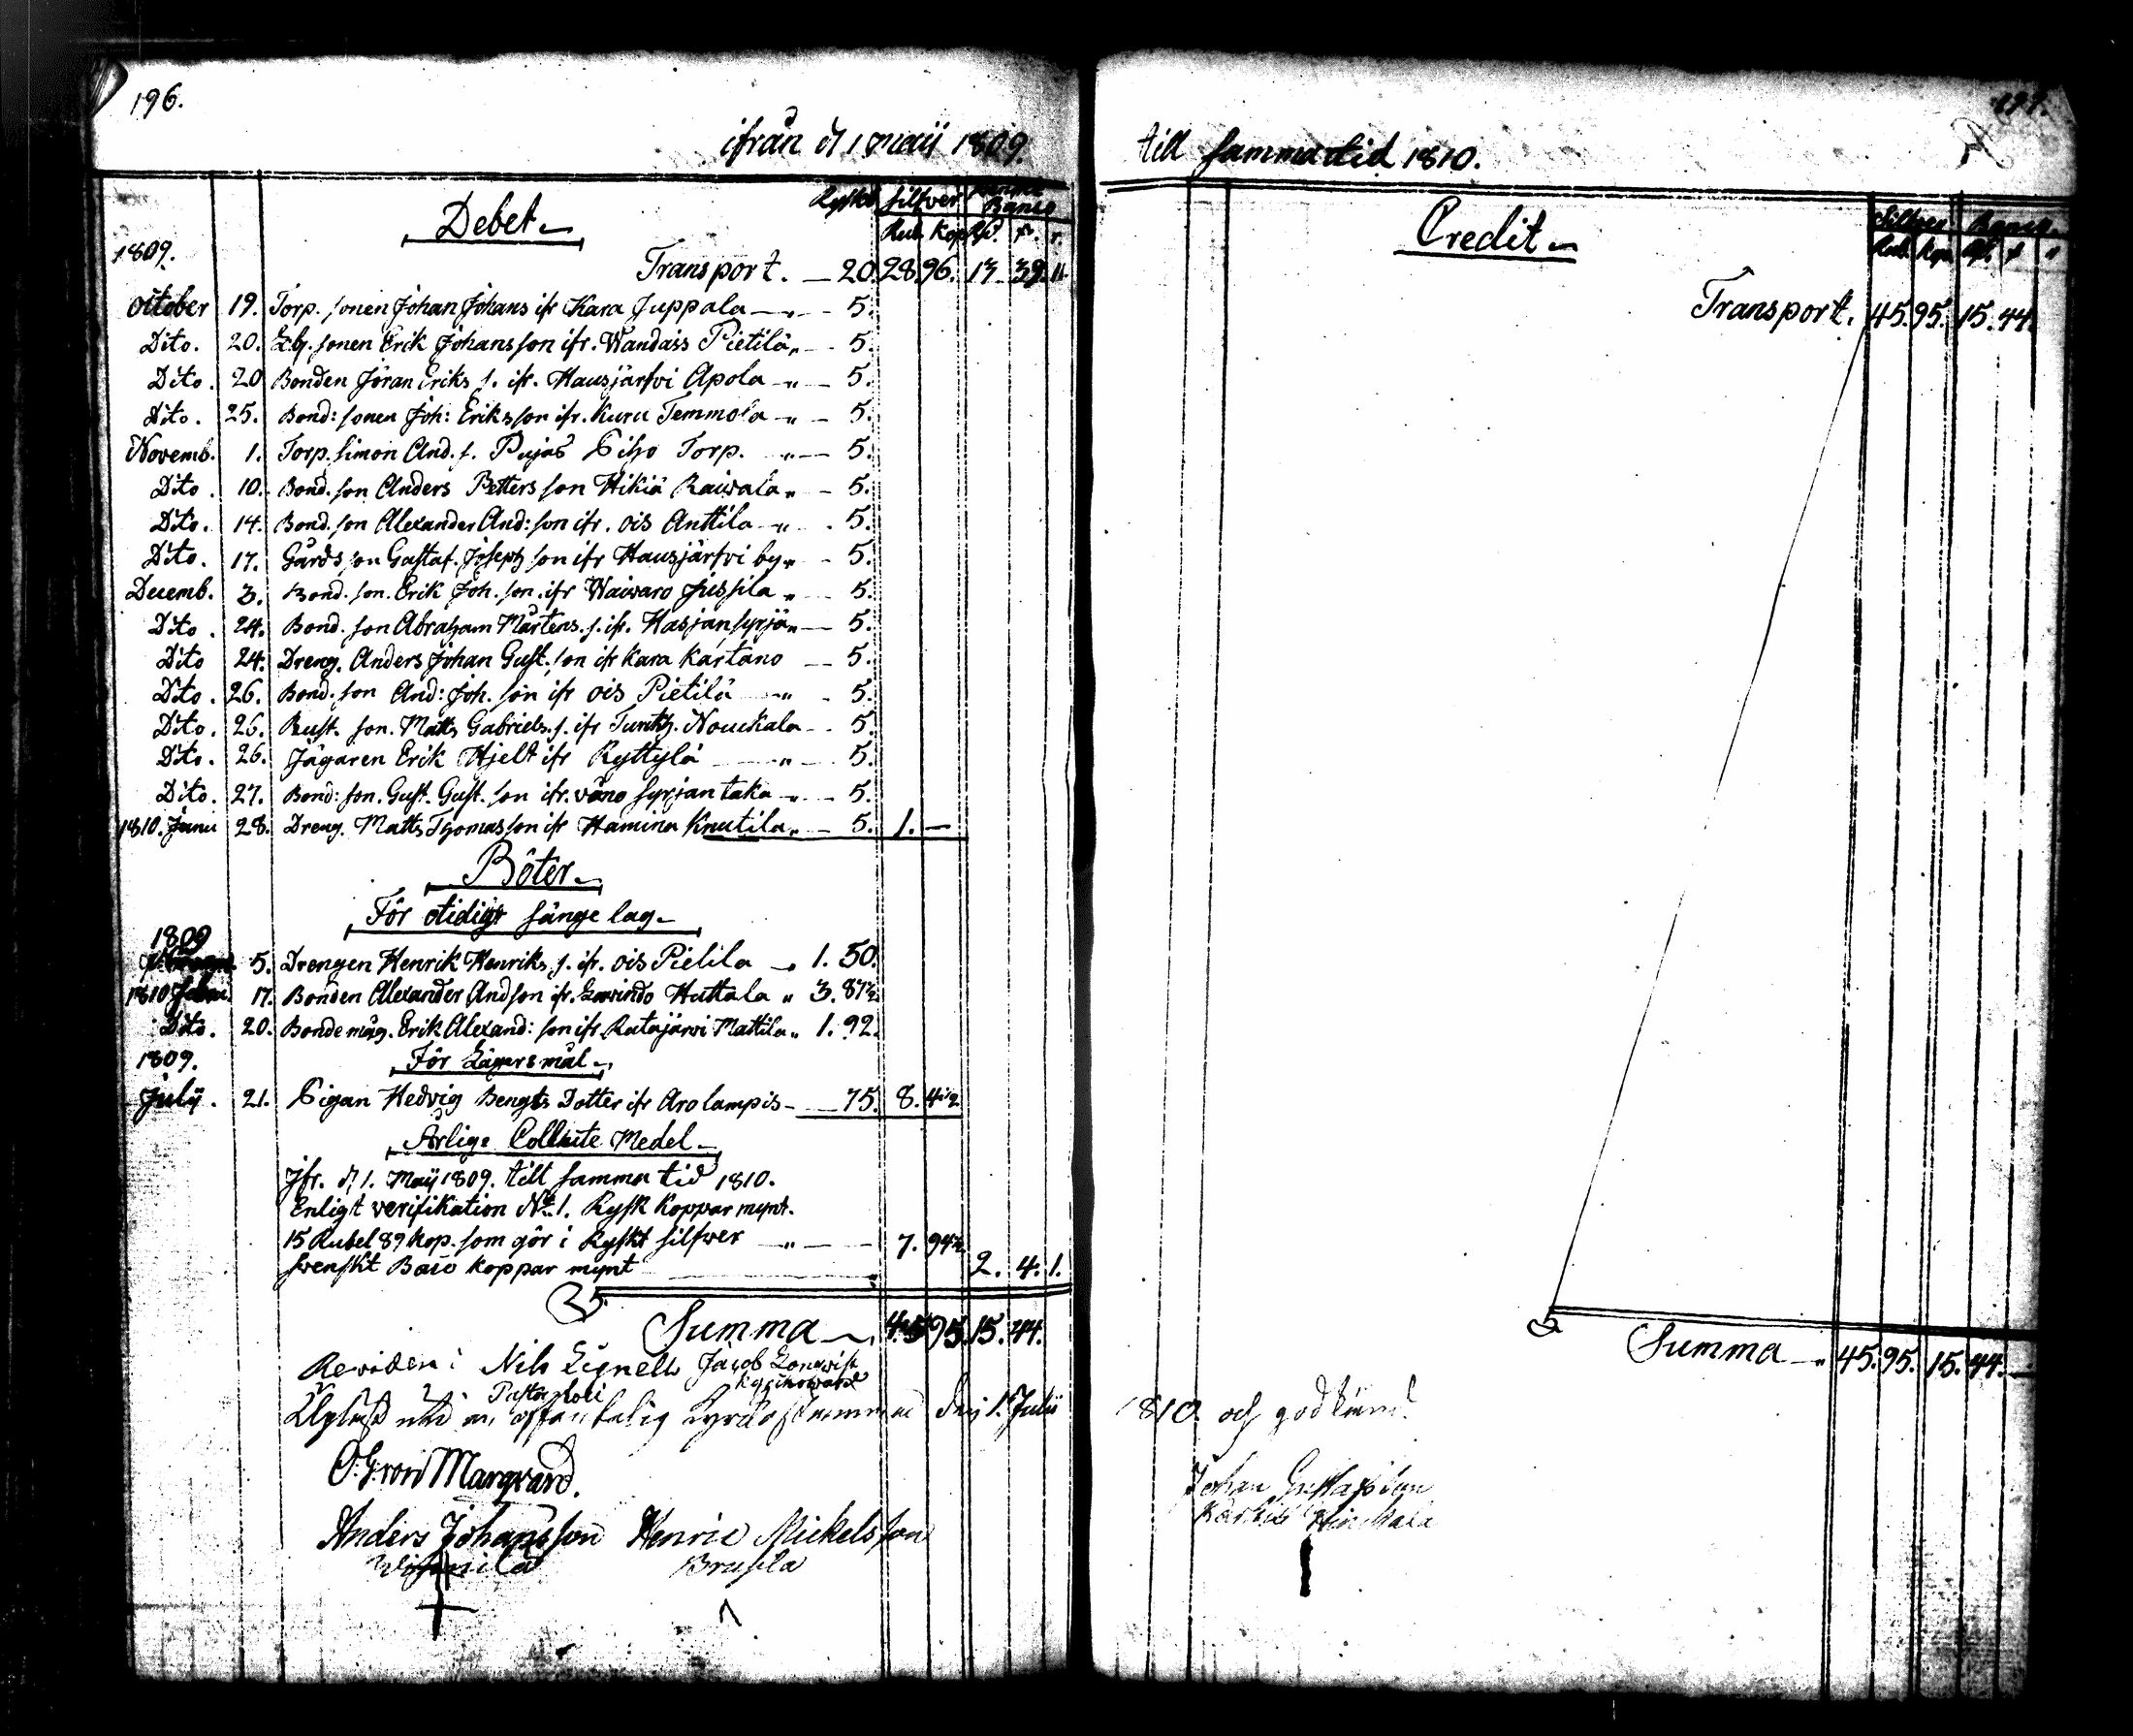 196.
ifrån d 1 Maij 1809.
Debet
Ryskt Silfver Banco
Rub. Kop. Rd. s. r.
1809.
Transport. — 20. 28. 96. 13. 39. 11.
October 19. Torp. sonen Johan Johans ifr Kara Juppala — 5.
Dito. 20. sonen Erik Johansson ifr. Wandais Pietilä — 5.
Dito. 20 Bonden Jöran Eriks s. ifr. Hausjärfvi Apola — 5.
Dito. 25. Bond: sonen Joh: Eriksson ifr. Kuru Temmola — 5.
Novemb. 1. Torp. Simon And. s. Torp. — 5.
Dito. 10. Bond. son Anders Petters son Hikiä Raiwala — 5.
Dito. 14. Bond. son Alexander And: son ifr. ois Anttila — 5.
Dito. 17. Gårds son Gustaf Joseph son ifr Hausjärfvi by — 5.
Decemb. 3. Bond. son. Erik Joh. son. ifr Waiwaro Jussila — 5.
Dito. 24. Bond. son Abraham Mårtens. s. ifr. Hasjansyrjä — 5.
Dito 24. Dreng. Anders Johan Gust. son ifr Kara Kartano — 5.
Dito. 26. Bond. son And: Joh. son ifr ois Pietilä — 5.
Dito. 26. Rust. son. Matts Gabriels. s. ifr Turckh. Nouckala — 5.
Dito. 26. Jägaren Erik Hjelt ifr Ryttylä — 5.
Dito. 27. Bond: son. Gust. Gust. son ifr. wåno syrjantaka — 5.
1810. Janu 28. Dreng. Matts Thomasson ifr Hamina Knutila — 5. 1. —
Böter
För otidigt sänge lag
1809
5. Drengen Henrik Henriks s. ifr. ois Pietila 1. 50.
1810 Febru. 17. Bonden Alexander Andson ifr. Hattala 3. 87½
Dito. 20. Bonde måg. Erik Alexand: son ifr Ratajärwi Mattila 1. 92.
1809.
För Lägersmål
July. 21. Pigan Hedvig Bengts Dotter ifr Arolampis — 75. 8. 4½
Årlige Collecte Medel
Ifr. d 1. Maij 1809. till samma tid 1810.
Enligt verifikation No. 1. Rysk Koppar mynt.
15 Rubel 89 Kop. som gör i Ryskt silfwer — 7. 94½
swenskt Baco koppar mynt — 2. 4. 1.
Summa 45. 95. 15. 44.
Reviderat Nils Lignell Jacob Lönqvist
Kyrckowärd
O. G. von Marqvard.
Anders Johansson Henric Mickelsson
Brusila
till samma tid 1810.
Credit
Silfver Banco
Rub. Kop. Rd. s. r
Transport. 45. 95. 15. 44.
Summa 45. 95. 15. 44. —
d: 1. Julii 1810. och godkänd.
Johan Gustafsson